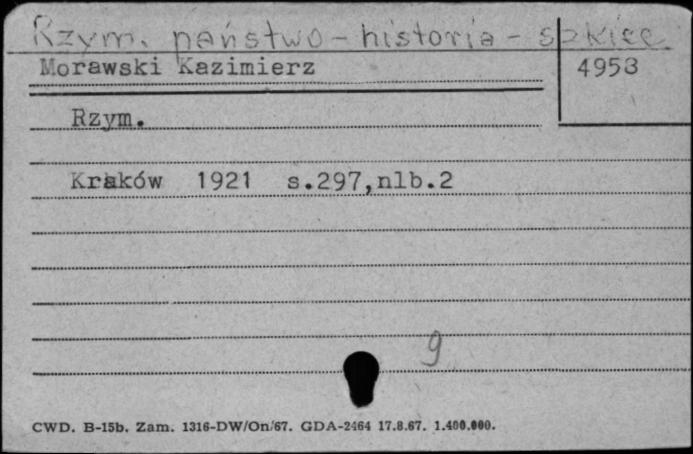 Rzym. państwo - historia - szkice
Morawski Kazimierz 4953
Rzym.
Kraków 1921 s.297,nlb.2
9
CWD. B-15b. Zam. 1316-DW/On/67. GDA-2464 17.8.67. 1.400.000.